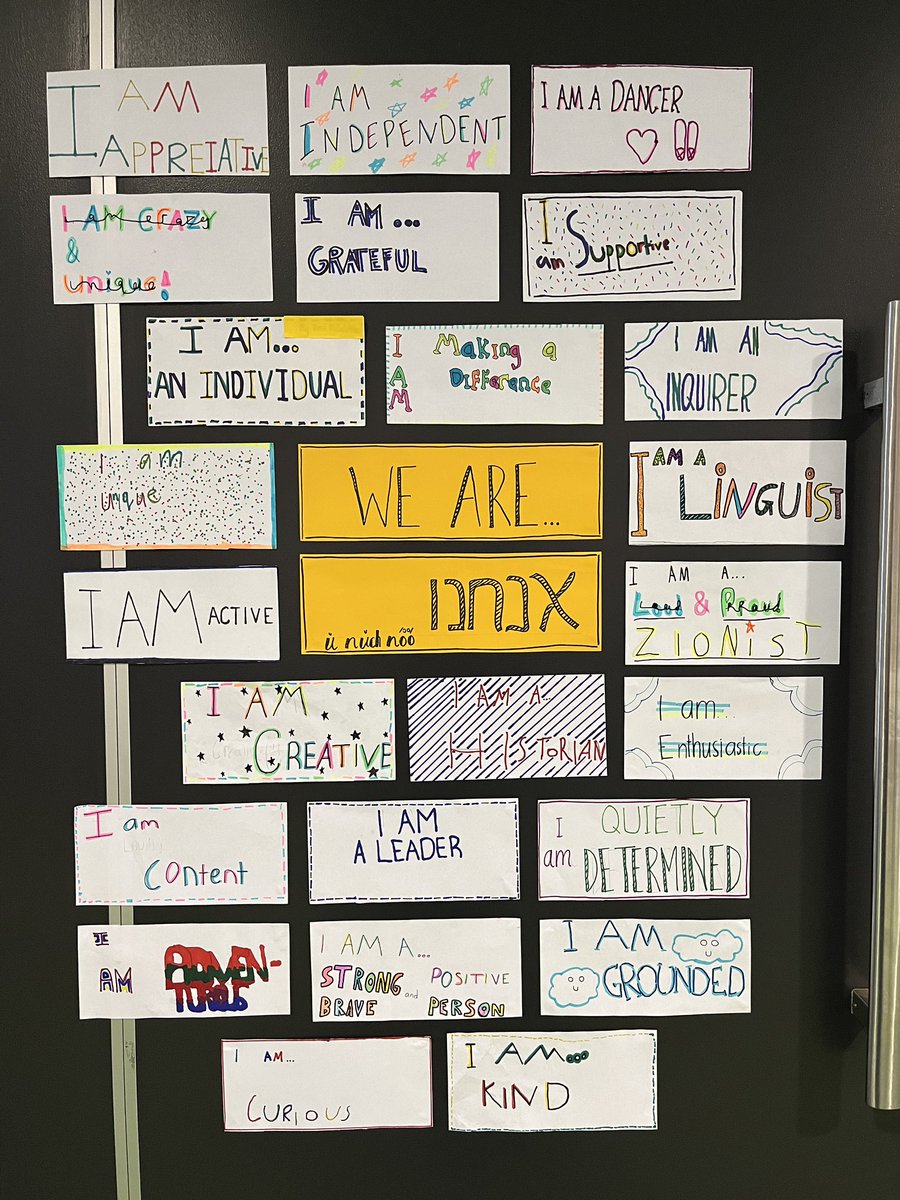 I AM
APPREIATIVE
I AM
INDEPENDENT
I AM A DANCER
I AM CRAZY
&
unique!
I AM...
GRATEFUL
I
am Supportive
I AM...
AN INDIVIDUAL
I AM
Making a
Difference
I AM AN
INQUIRER
I am
unique
WE ARE...
I AM A
LINGUIST
I AM ACTIVE
אנחנו
ü nüch nöö
I AM A...
Loud & Proud
ZIONIST
I AM
CREATIVE
I AM A...
HISTORIAN
I am...
Enthusiastic
I am
Content
I AM
A LEADER
I am
QUIETLY
DETERMINED
I
AM
ADVEN-
TUROUS
I AM A...
STRONG and POSITIVE
BRAVE PERSON
I AM
GROUNDED
I AM...
CURIOUS
I AM...
KIND